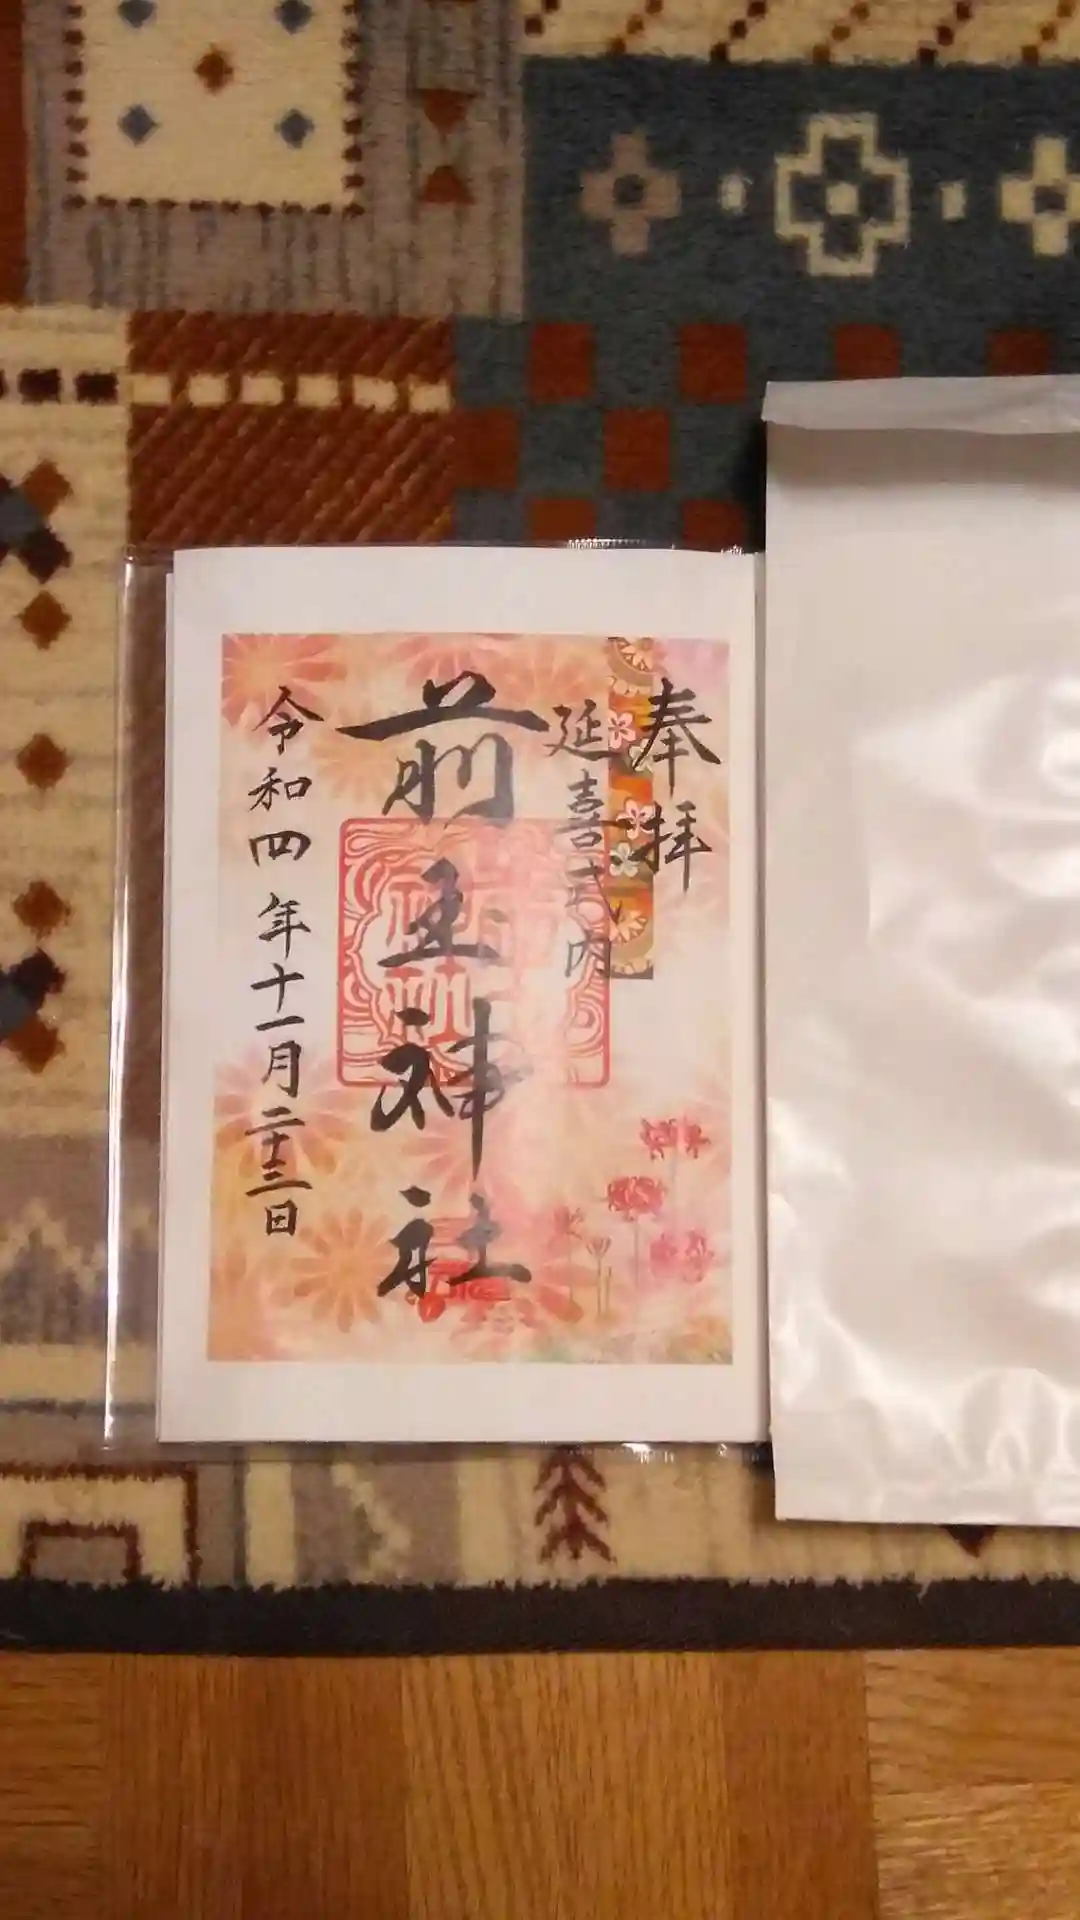 奉拝
延喜式内
前玉神社
令和四年十一月二十三日